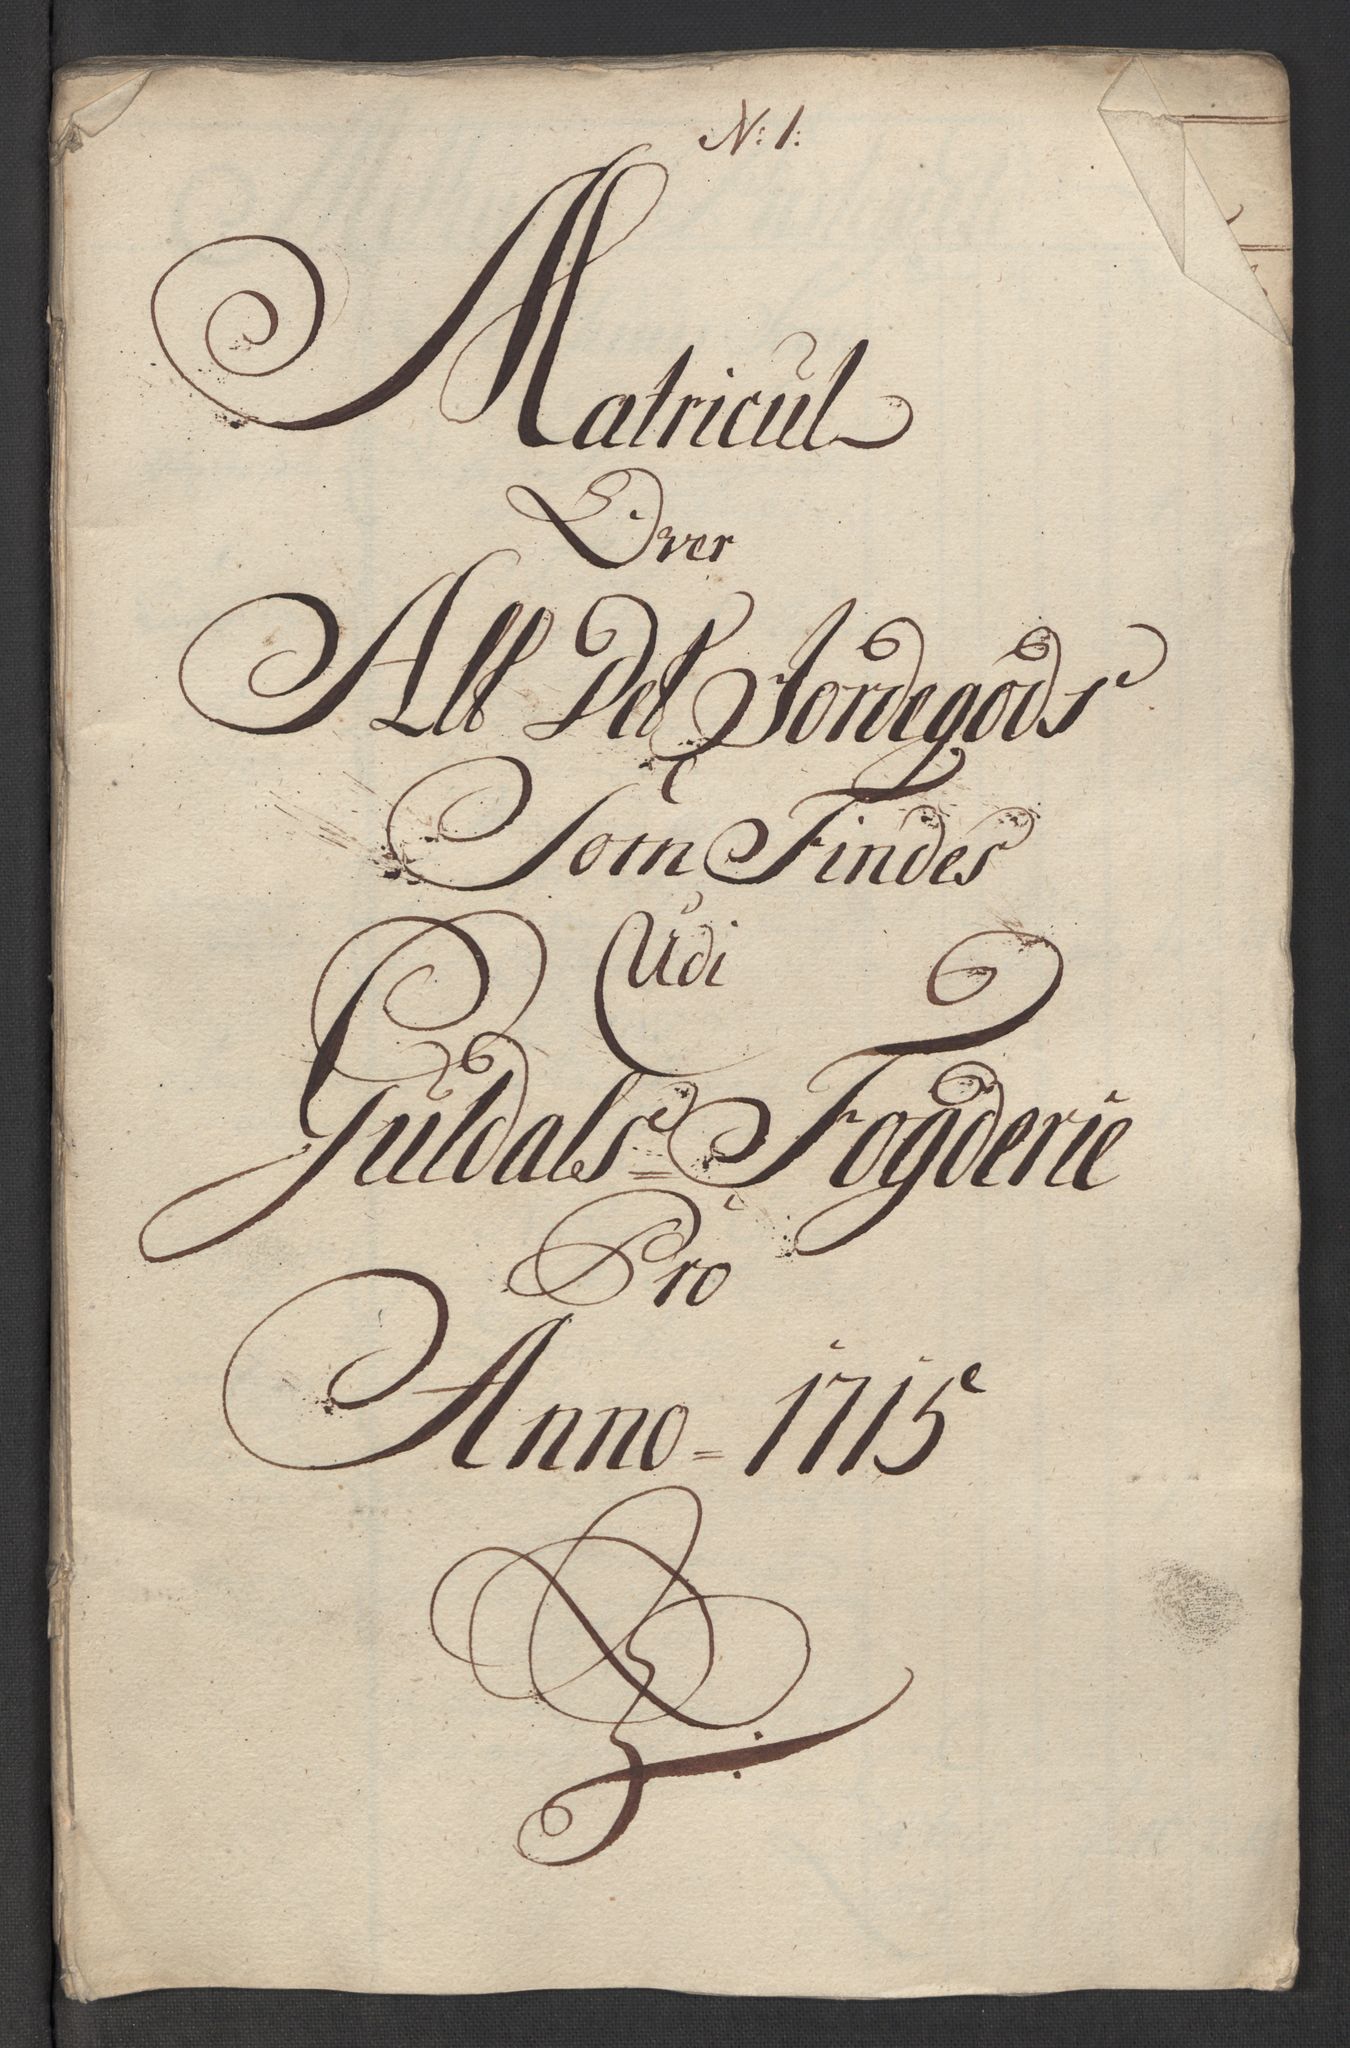 N: 1:
Matricul
Over
Alt Det Jordegods
Som Findes
Udi
Guldals = Fogderie
Pro
Anno = 1715